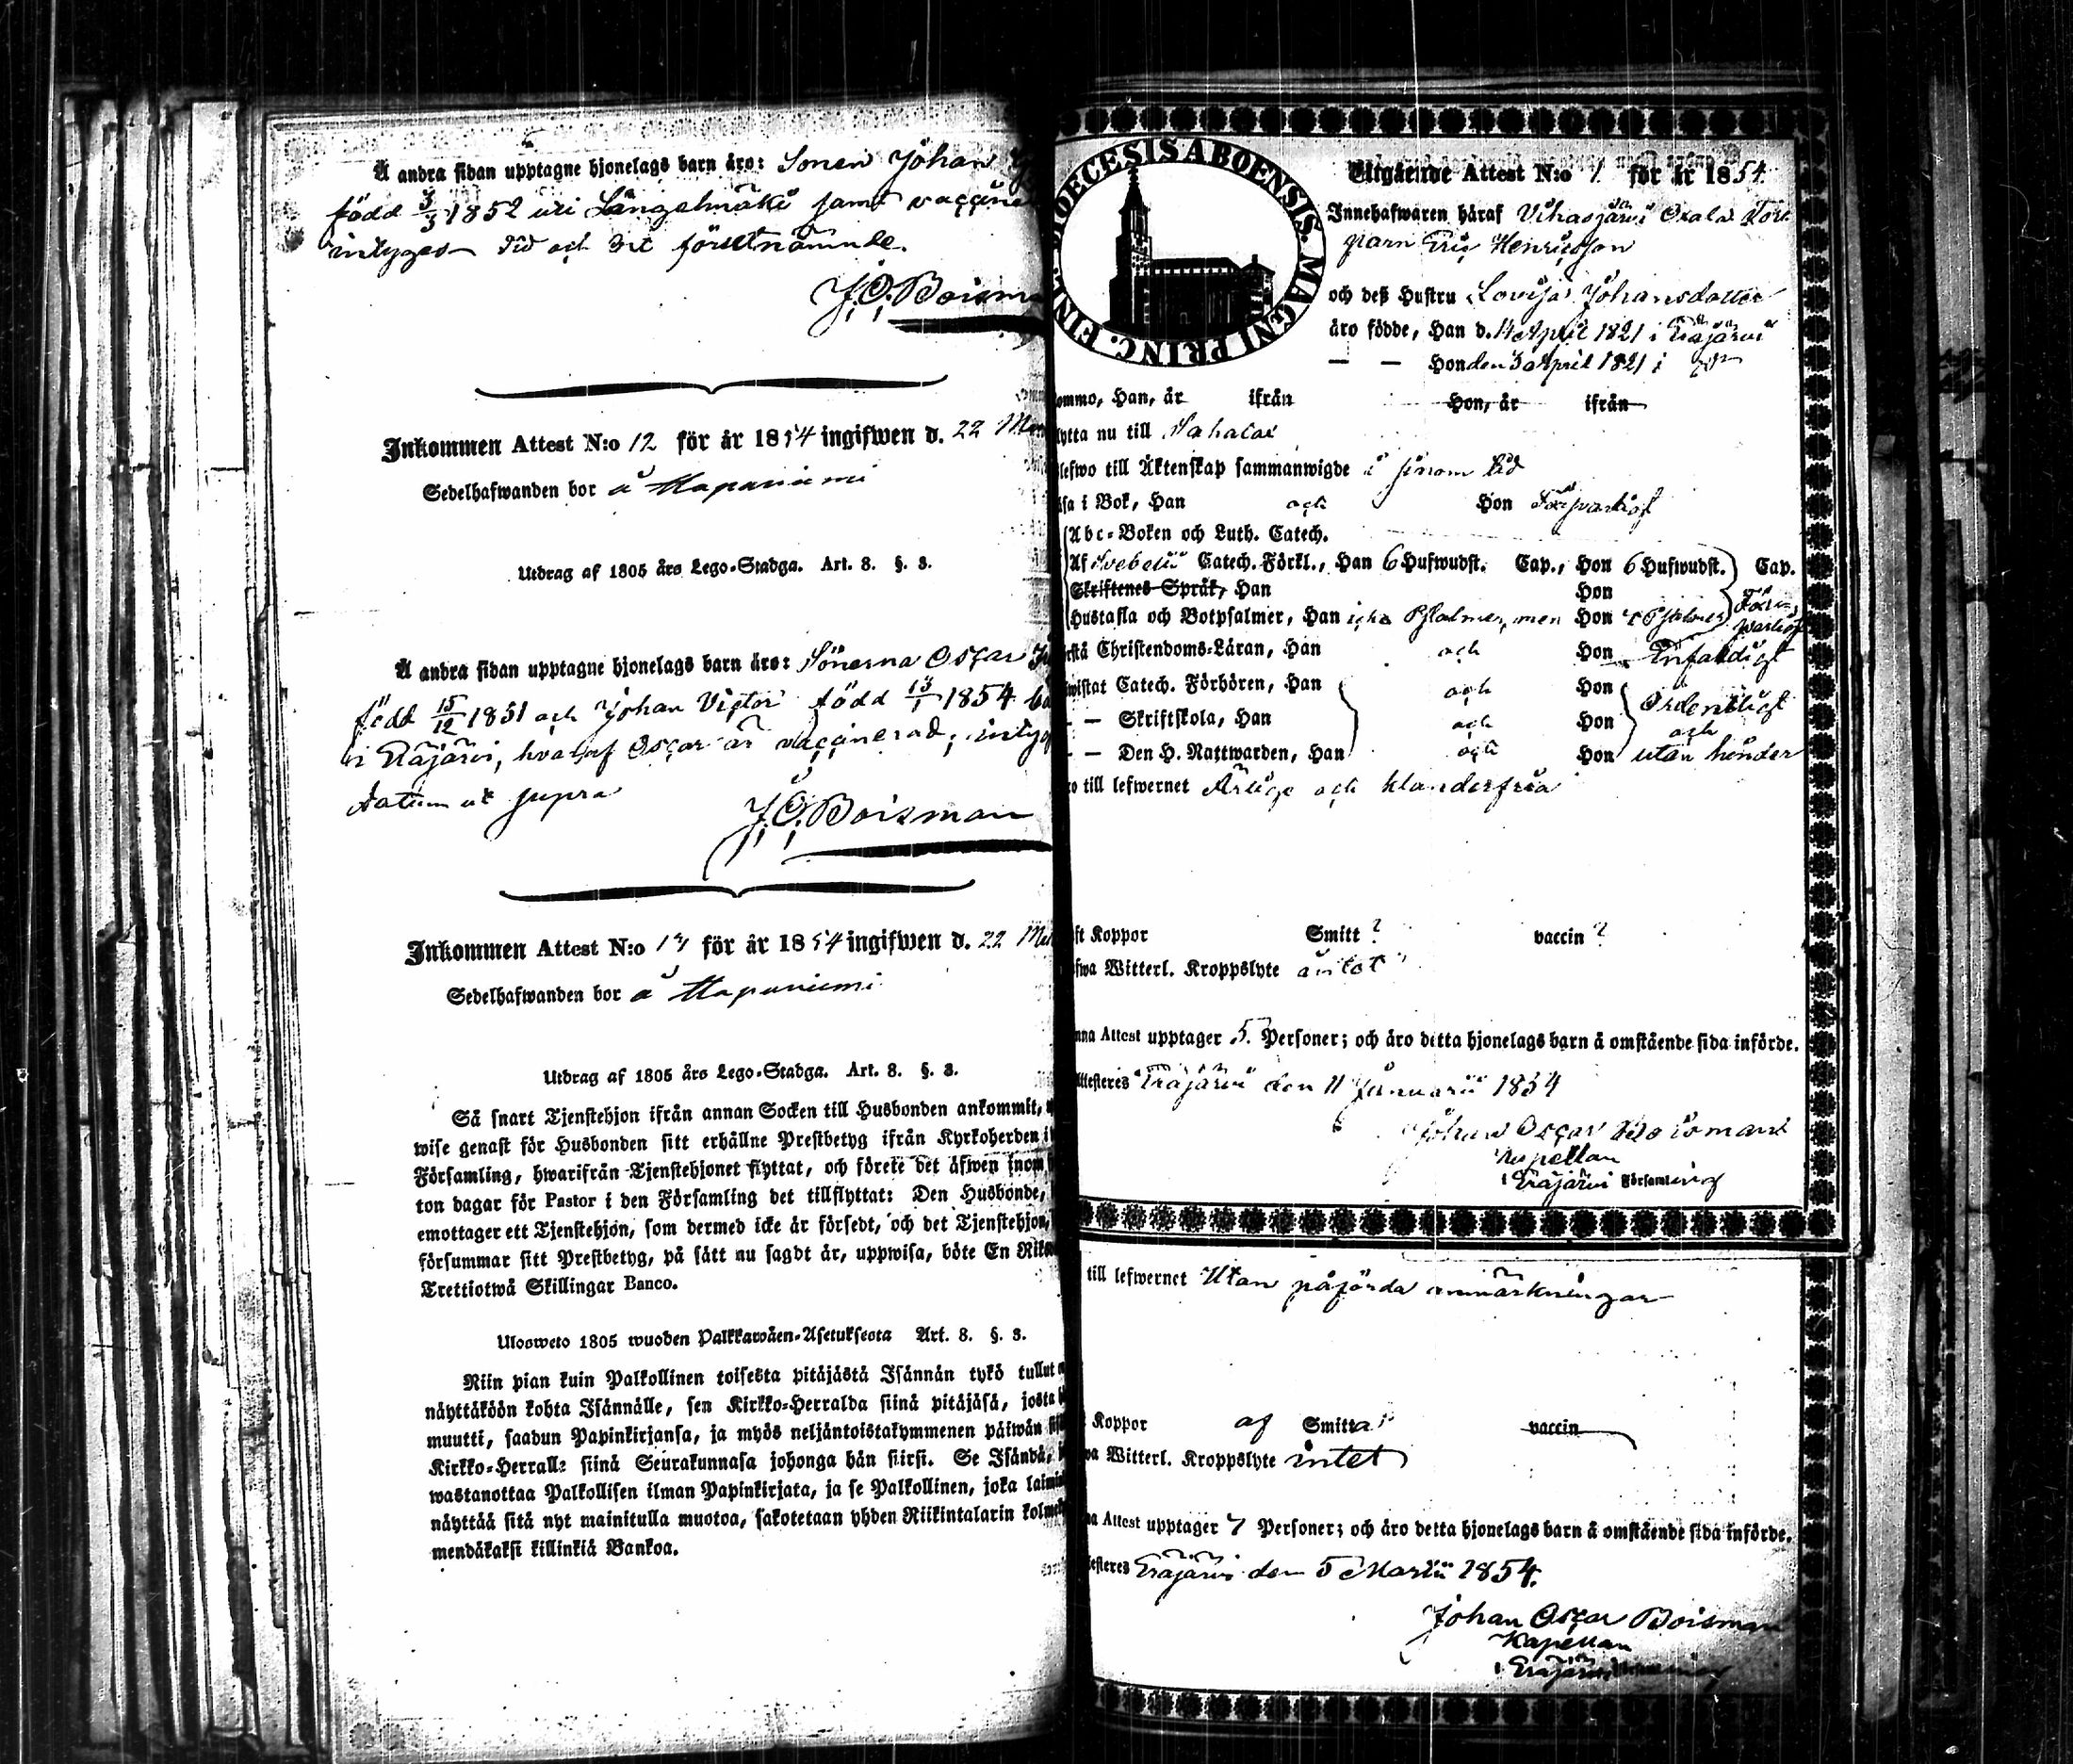 Å andra sidan upptagne hjonelags barn äro: Sonen Johan
född 3/3 1852 uti Längelmäki samt vaccine
intygas tid och ort förutnämnde.
J. O. Boism
Inkommen Attest N:o 12 för år 1854 ingifwen d. 22
Sedelhafwanden bor å Haponiemi
Utdrag af 1805 års Lego-Stadga. Art. 8. §. 3.
Å andra sidan upptagne hjonelags barn äro: Sönerna Oscar
född 15/12 1851 och Johan Victor född 13/1 1854
i Eräjärvi, hvaraf Oscar är vaccinerad, intyg
datum ut supra
J. O. Boisman
Inkommen Attest N:o 13 för år 1854 ingifwen d. 22
Sedelhafwanden bor å Haponiemi
Utdrag af 1805 års Lego-Stadga. Art. 8. §. 3.
Så snart Tjenstehjon ifrån annan Socken till Husbonden ankommit,
wise genast för Husbonden sitt erhållne Prestbetyg ifrån Kyrkoherden i
Församling, hwarifrån Tjenstehjonet flyttat, och förete det äfwen inom
ton dagar för Pastor i den Församling det tillflyttat: Den Husbonde,
emottager ett Tjenstehjon, som dermed icke är försedt, och det Tjenstehjon,
försummar sitt Prestbetyg, på sätt nu sagdt är, uppwisa, böte En Riks
Trettiotwå Skillingar Banco.
Ulosweto 1805 wuoden Palkkawäen-Asetuksesta Art. 8. §. 3.
Niin pian kuin Palkollinen toisesta pitäjästä Isännän tykö tullut
näyttäköön kohta Isännälle, sen Kirkko-Herralda siinä pitäjäsä, josta
muutti, saadun Papinkirjansa, ja myös neljäntoistakymmenen päiwän
Kirkko-Herralle siinä Seurakunnasa johonga hän siirsi. Se Isändä,
wastanottaa Palkollisen ilman Papinkirjata, ja se Palkollinen, joka laimi
näyttää sitä nyt mainitulla muotoa, sakotetaan yhden Riikintalarin kolme
mendäkaksi killinkiä Bankoa.
DIOECESIS ABOENSIS. MAGNI PRINC. FINL.
Utgående Attest N:o 1 för år 1854
Innehafwaren häraf Vihasjärvi Oxala Tor
parn Eric Henricsson
och deß Hustru Lovisa Johansdotter
äro födde, Han d. 14 April 1821 i Eräjärvi
— — Hon den 30 April 1821 i
ommo, Han, år ifrån Hon, år ifrån
lytta nu till Sahalax
lefwo till Äktenskap sammanwigde i sinom tid
äsa i Bok, Han och Hon Förswarligt
Abc-Boken och Luth. Catech.
Af Svebelii Catech. Förkl., Han 6 Hufwudst. Cap., Hon 6 Hufwudst. Cap.
Skriftenes Språk, Han Hon
Hustafla och Botpsalmer, Han icke Psalmer, men Hon Psalmer För
warligt
rstå Christendoms-Läran, Han och Hon Enfaldigt
wistat Catech. Förhören, Han och Hon Ordentligt
— — Skriftskola, Han och Hon och
— — Den H. Nattwarden, Han och Hon utan hinder
ro till lefwernet Ärlige och klanderfria
ft Koppor Smitt ? vaccin ?
fwa Witterl. Kroppslyte intet
nna Attest upptager 5 Personer; och äro detta hjonelags barn å omstående sida införde.
Attesteres Eräjärvi den 11 Januarii 1854
Johan Oscar Boisman
Kapellan
i Eräjärvi Församling
till lefwernet Utan påförda anmärkningar
Koppor af Smitta vaccin
wa Witterl. Kroppslyte intet
na Attest upptager 7 Personer; och äro detta hjonelags barn å omstående sida införde.
testeres Eräjärvi den 5 Martii 1854.
Johan Oscar Boisman
Kapellan
i Eräjärvi